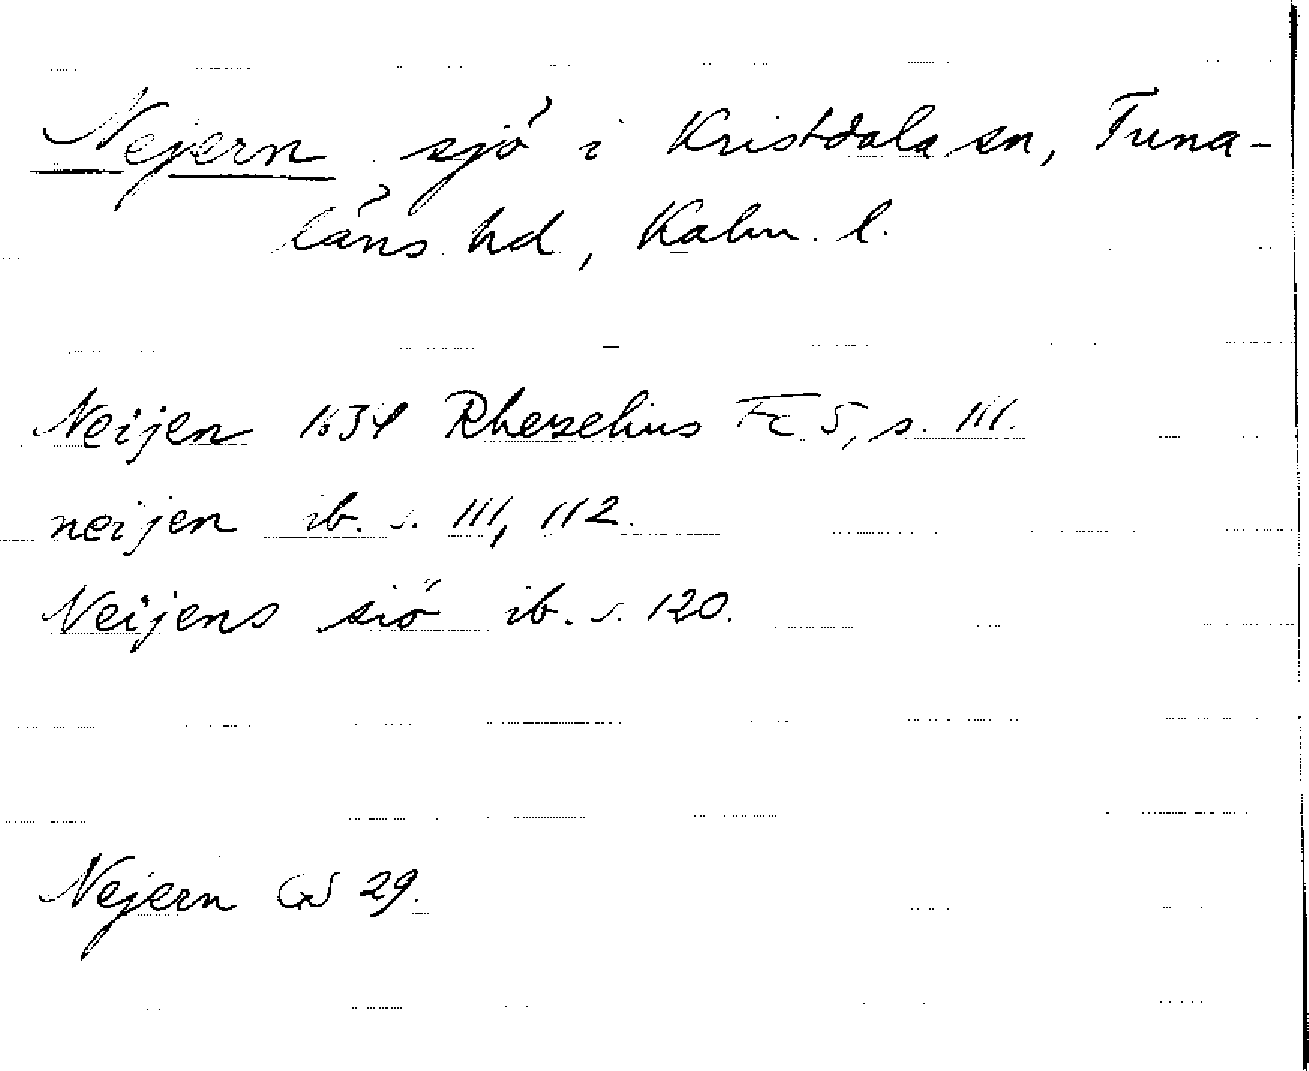 Nejern sjö i Kristdala sn, Tuna-
läns hd, Kalm. l.
Neijen 1634 Rhezelius Fc 5, s. 111.
neijen ib. s. 111, 112.
Neijens siö ib. s. 120.
Nejern GS 29.